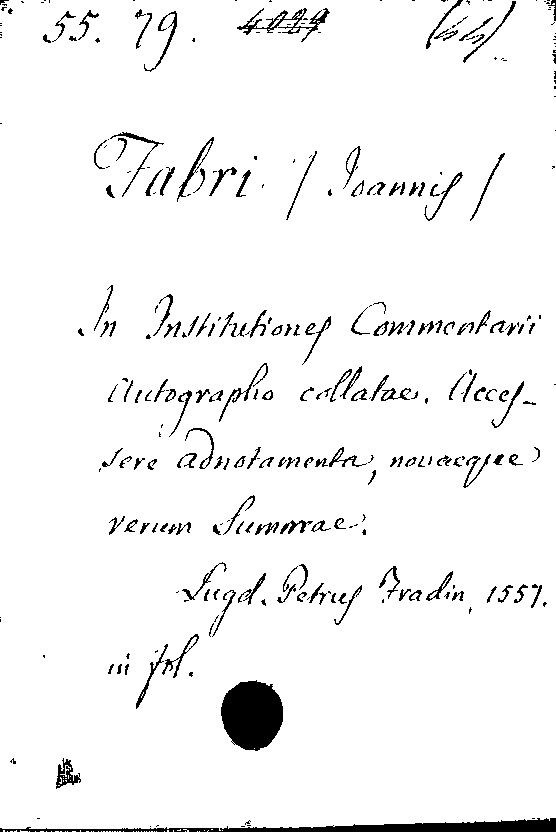 55. 79. 4029
Fabri / Joannis /
In Institutiones Commentarii
Autographo collatae. Acces-
sere adnotamenta, novaeque
rerum Summae.
Lugd. Petrus Fradin, 1557.
in fol.